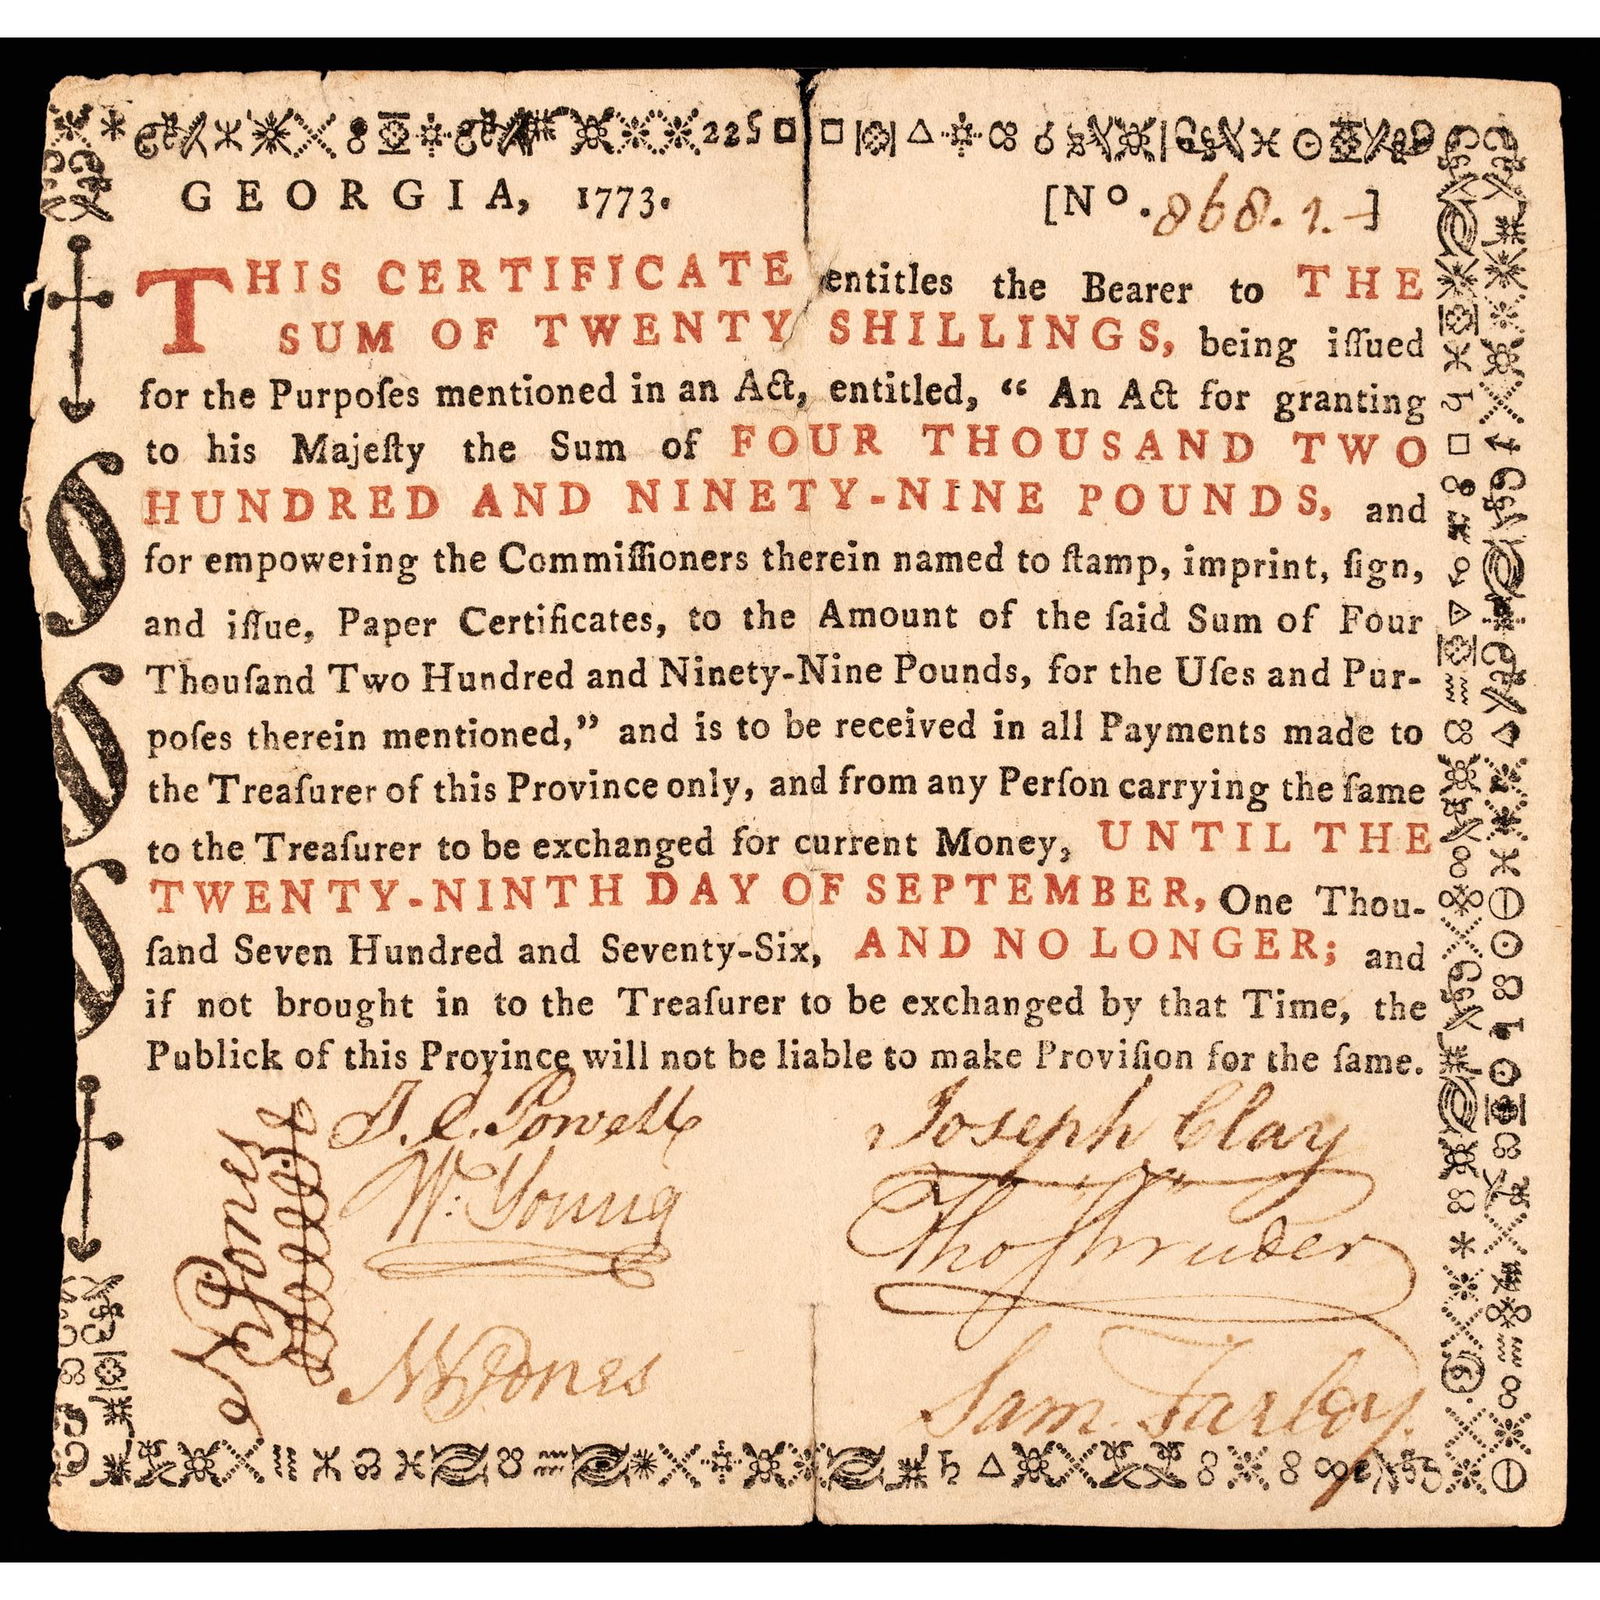 GEORGIA, 1773. [No. 868.1.]
THIS CERTIFICATE entitles the Bearer to THE
SUM OF TWENTY SHILLINGS, being iſſued
for the Purpoſes mentioned in an Act, entitled, “ An Act for granting
to his Majeſty the Sum of FOUR THOUSAND TWO
HUNDRED AND NINETY-NINE POUNDS, and
for empowering the Commiſſioners therein named to ſtamp, imprint, ſign,
and iſſue, Paper Certificates, to the Amount of the ſaid Sum of Four
Thouſand Two Hundred and Ninety-Nine Pounds, for the Uſes and Pur-
poſes therein mentioned,” and is to be received in all Payments made to
the Treaſurer of this Province only, and from any Perſon carrying the ſame
to the Treaſurer to be exchanged for current Money, UNTIL THE
TWENTY-NINTH DAY OF SEPTEMBER, One Thou-
ſand Seven Hundred and Seventy-Six, AND NO LONGER; and
if not brought in to the Treaſurer to be exchanged by that Time, the
Publick of this Province will not be liable to make Proviſion for the ſame.
J. E. Powell Joseph Clay
W. Young
N W Jones Sam Farley
N Jones